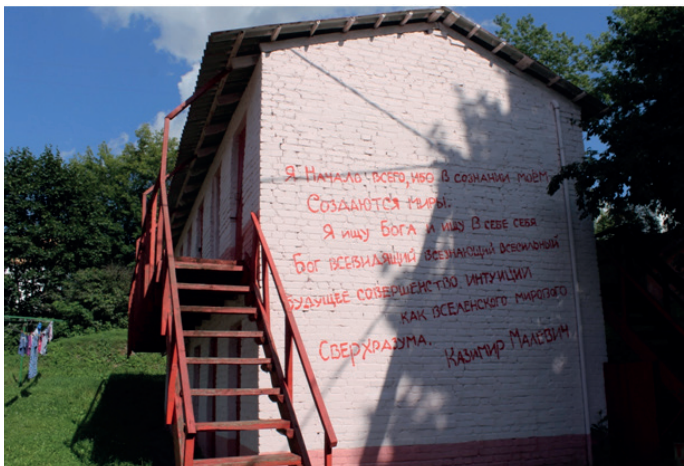 Я Начало всего, ибо в сознании моём
Создаются миры.
Я ищу Бога и ищу в себе себя
Бог всевидящий всезнающий всесильный
Будущее совершенство интуиции
как вселенского мирового
Сверхразума.
Казимир Малевич